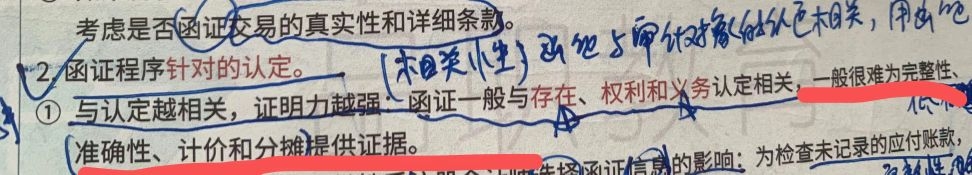 考虑是否函证交易的真实性和详细条款。
2. 函证程序针对的认定。
(相关性)
① 与认定越相关,证明力越强:函证一般与存在、权利和义务认定相关,一般很难为完整性、
准确性、计价和分摊提供证据。
选择函证信息的影响:为检查未记录的应付账款,